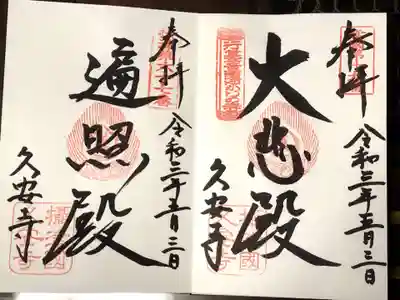 奉拝
令和三年五月三日
大悲殿
久安寺
奉拝
令和三年五月三日
遍照殿
久安寺